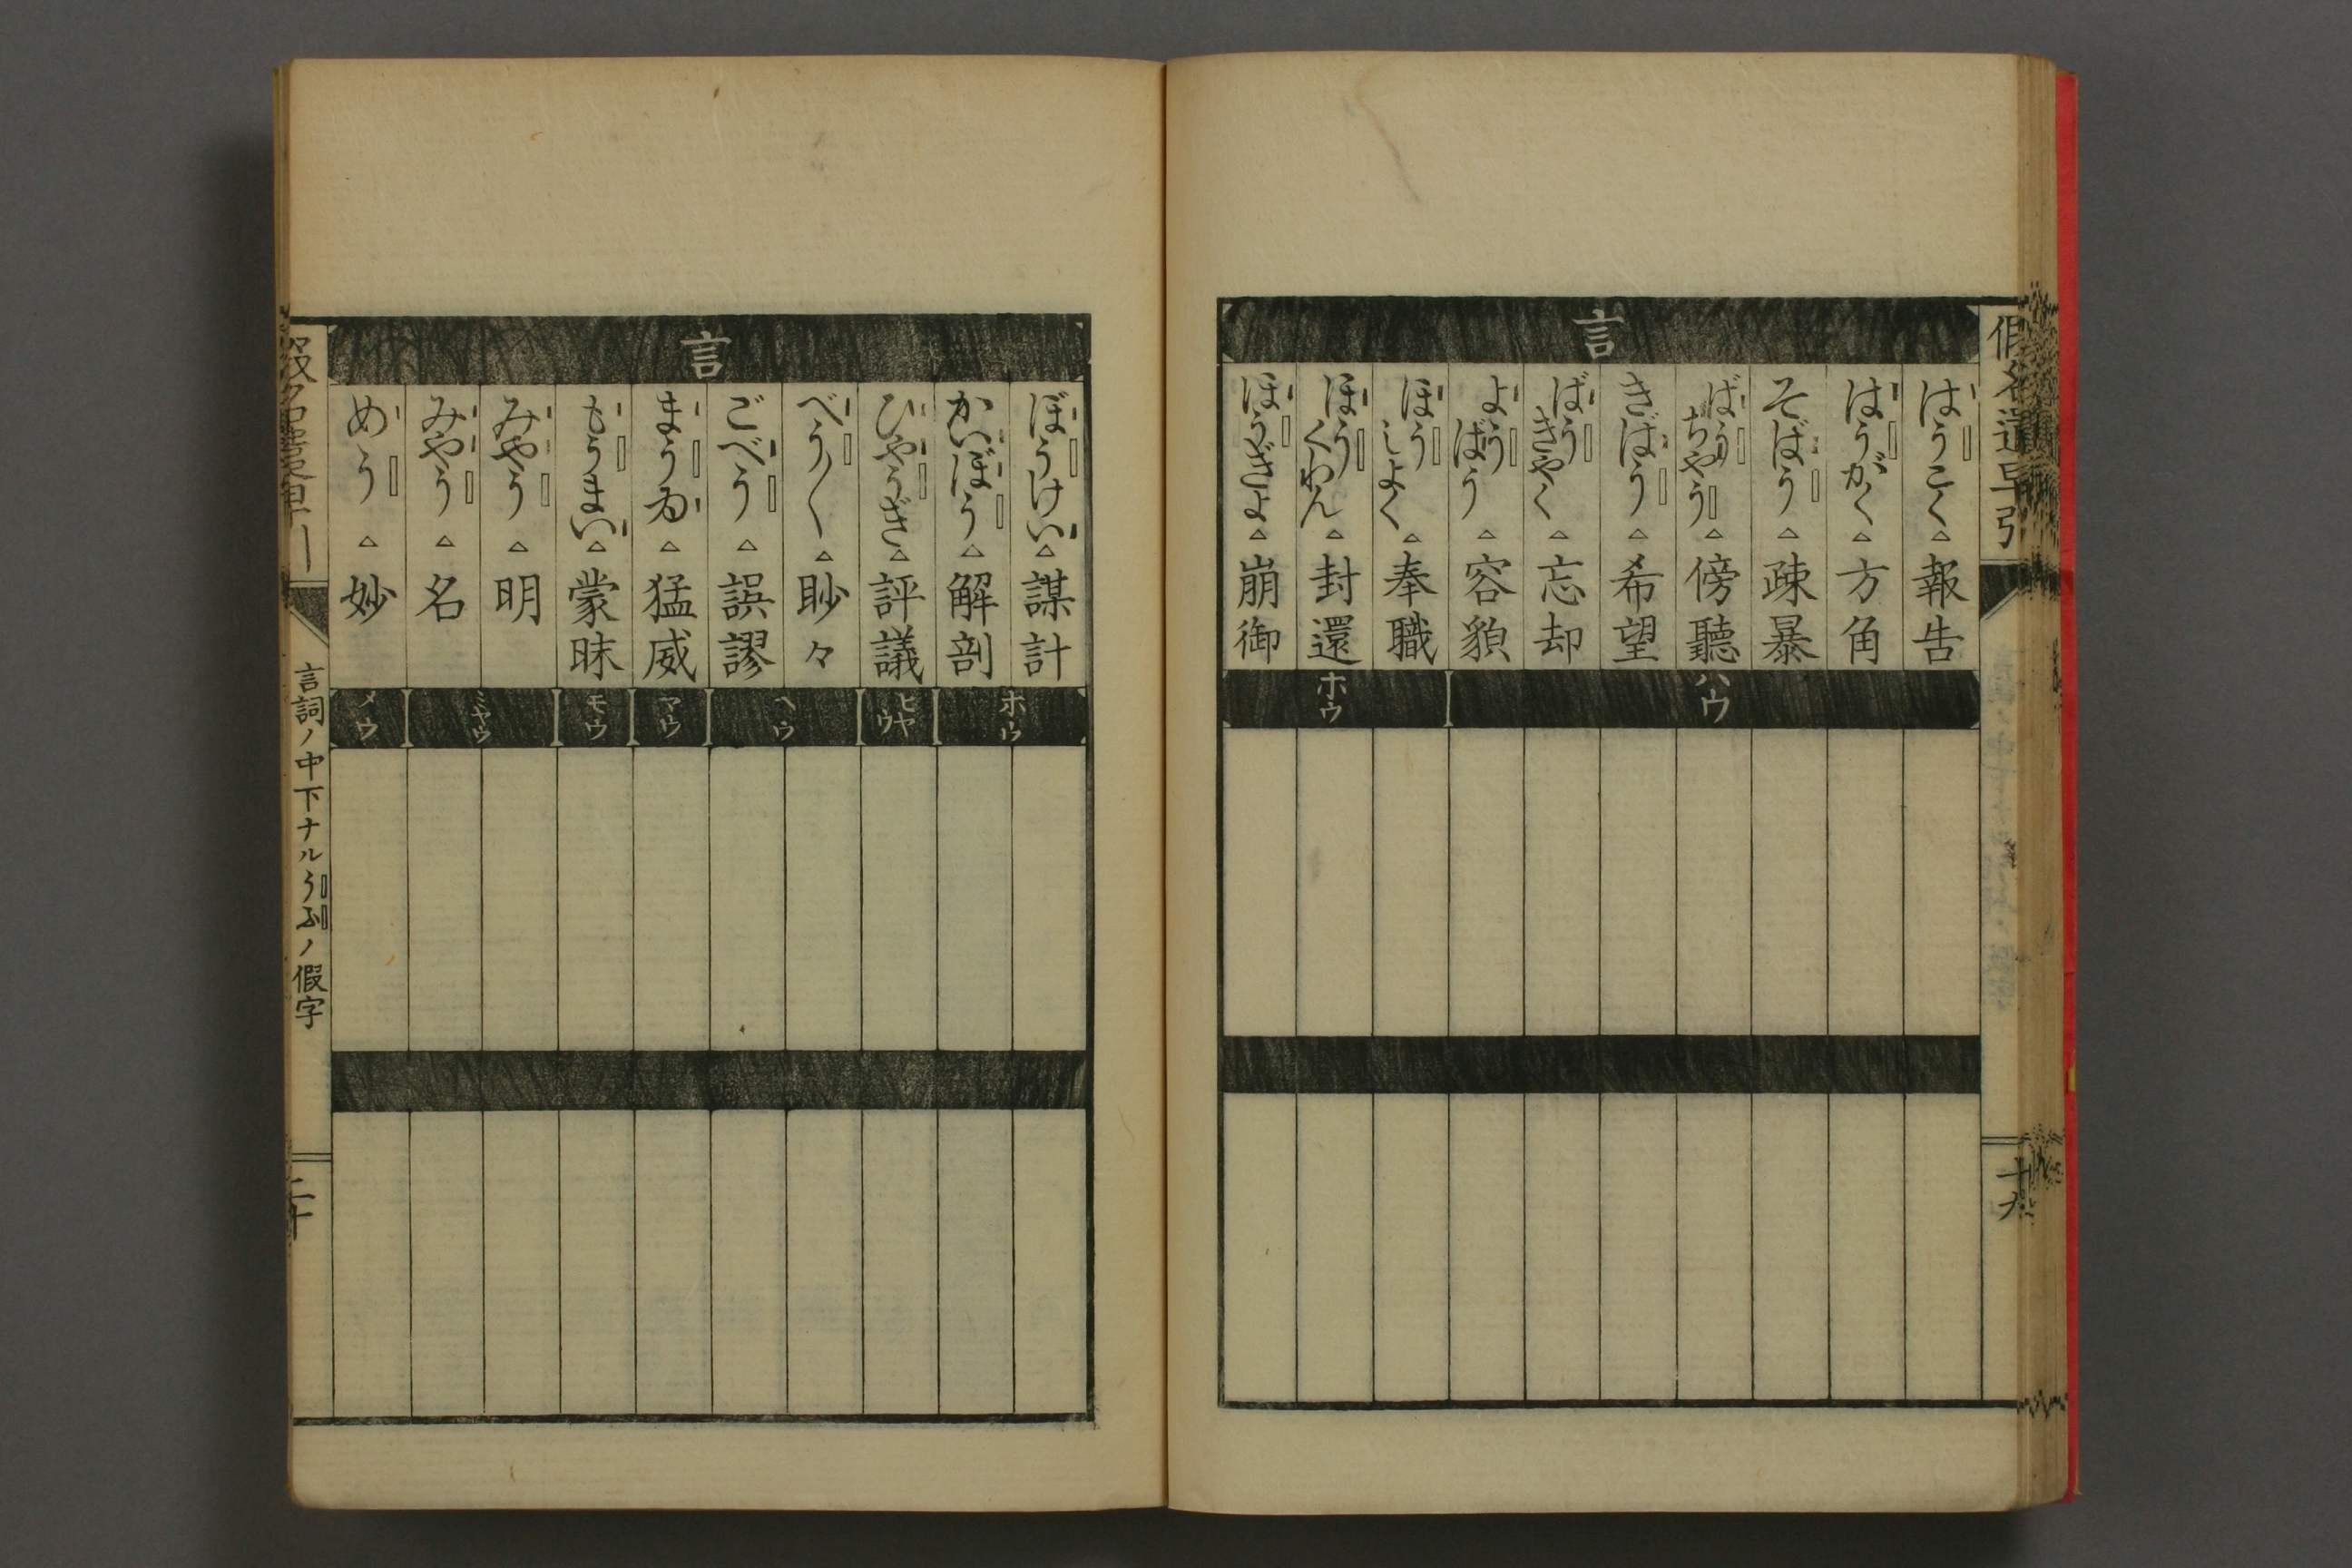 假名遣早引
十九
言
はうこく△報告
はうがく△方角
そばう△疎暴
ばうちやう△傍聽
きばう△希望
ばうきやく△忘却
ようばう△容貌
ほうしよく△奉職
ほうくわん△封還
ほうぎよ△崩御
ハウ
ホウ
言
ぼうけい△謀計
かいぼう△解剖
ひやうぎ△評議
べう〱△眇々
ごべう△誤謬
まうゐ△猛威
もうまい△蒙昧
みやう△明
みやう△名
めう△妙
ホウ
ヒヤウ
ヘウ
マウ
モウ
ミヤウ
メウ
假名遣早引
言詞ノ中下ナルうふノ假字
二十